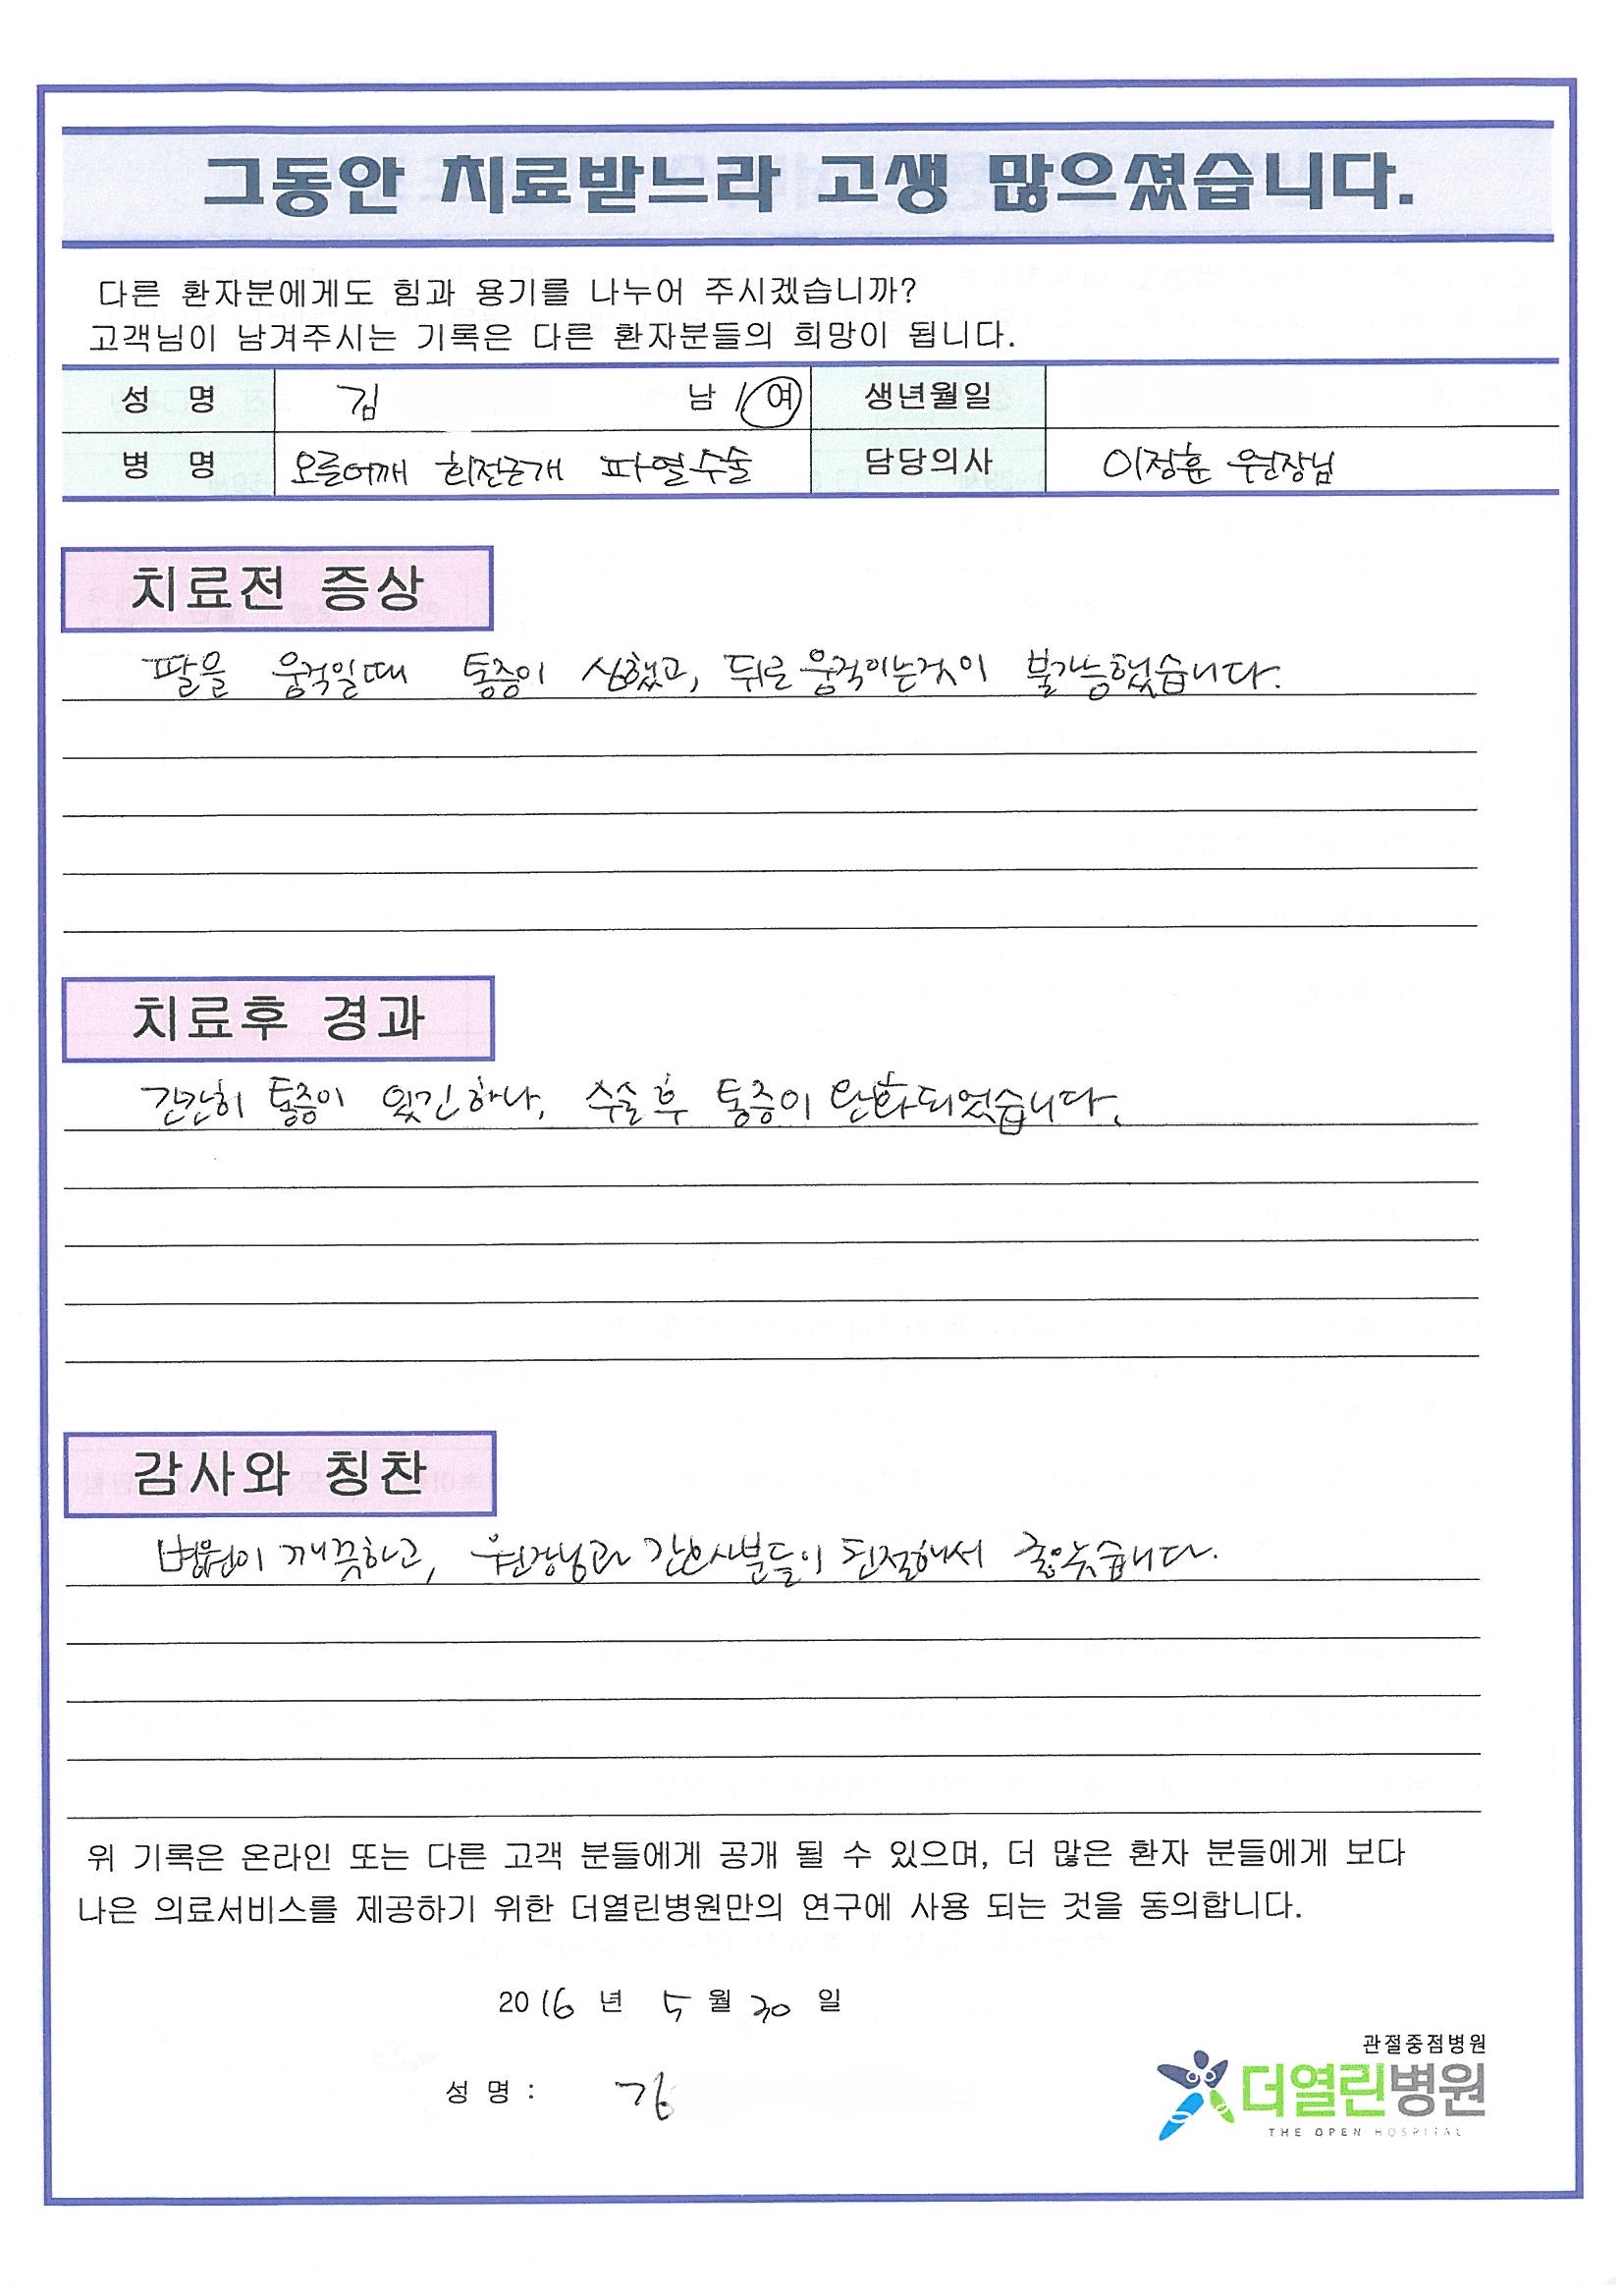 그동안 치료받느라 고생 많으셨습니다.
다른 환자분에게도 힘과 용기를 나누어 주시겠습니까?
고객님이 남겨주시는 기록은 다른 환자분들의 희망이 됩니다.
성 명 김 남 / 여 생년월일
병 명 오른어깨 회전근개 파열수술 담당의사 이정훈 원장님
치료전 증상
팔을 움직일때 통증이 심했고, 뒤로 움직이는것이 불가능했습니다.
치료후 경과
간간히 통증이 있긴하나, 수술후 통증이 완화되었습니다.
감사와 칭찬
병원이 깨끗하고, 원장님과 간호사분들이 친절해서 좋았습니다.
위 기록은 온라인 또는 다른 고객 분들에게 공개 될 수 있으며, 더 많은 환자 분들에게 보다
나은 의료서비스를 제공하기 위한 더열린병원만의 연구에 사용 되는 것을 동의합니다.
2016 년 5 월 30 일
성 명 : 김
관절중점병원
더열린병원
THE OPEN HOSPITAL